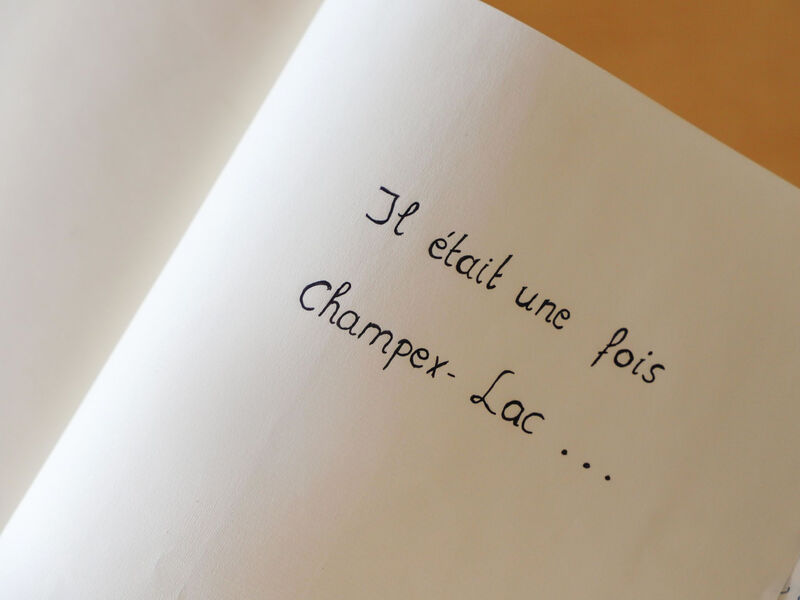 Il était une fois
Champex-Lac...